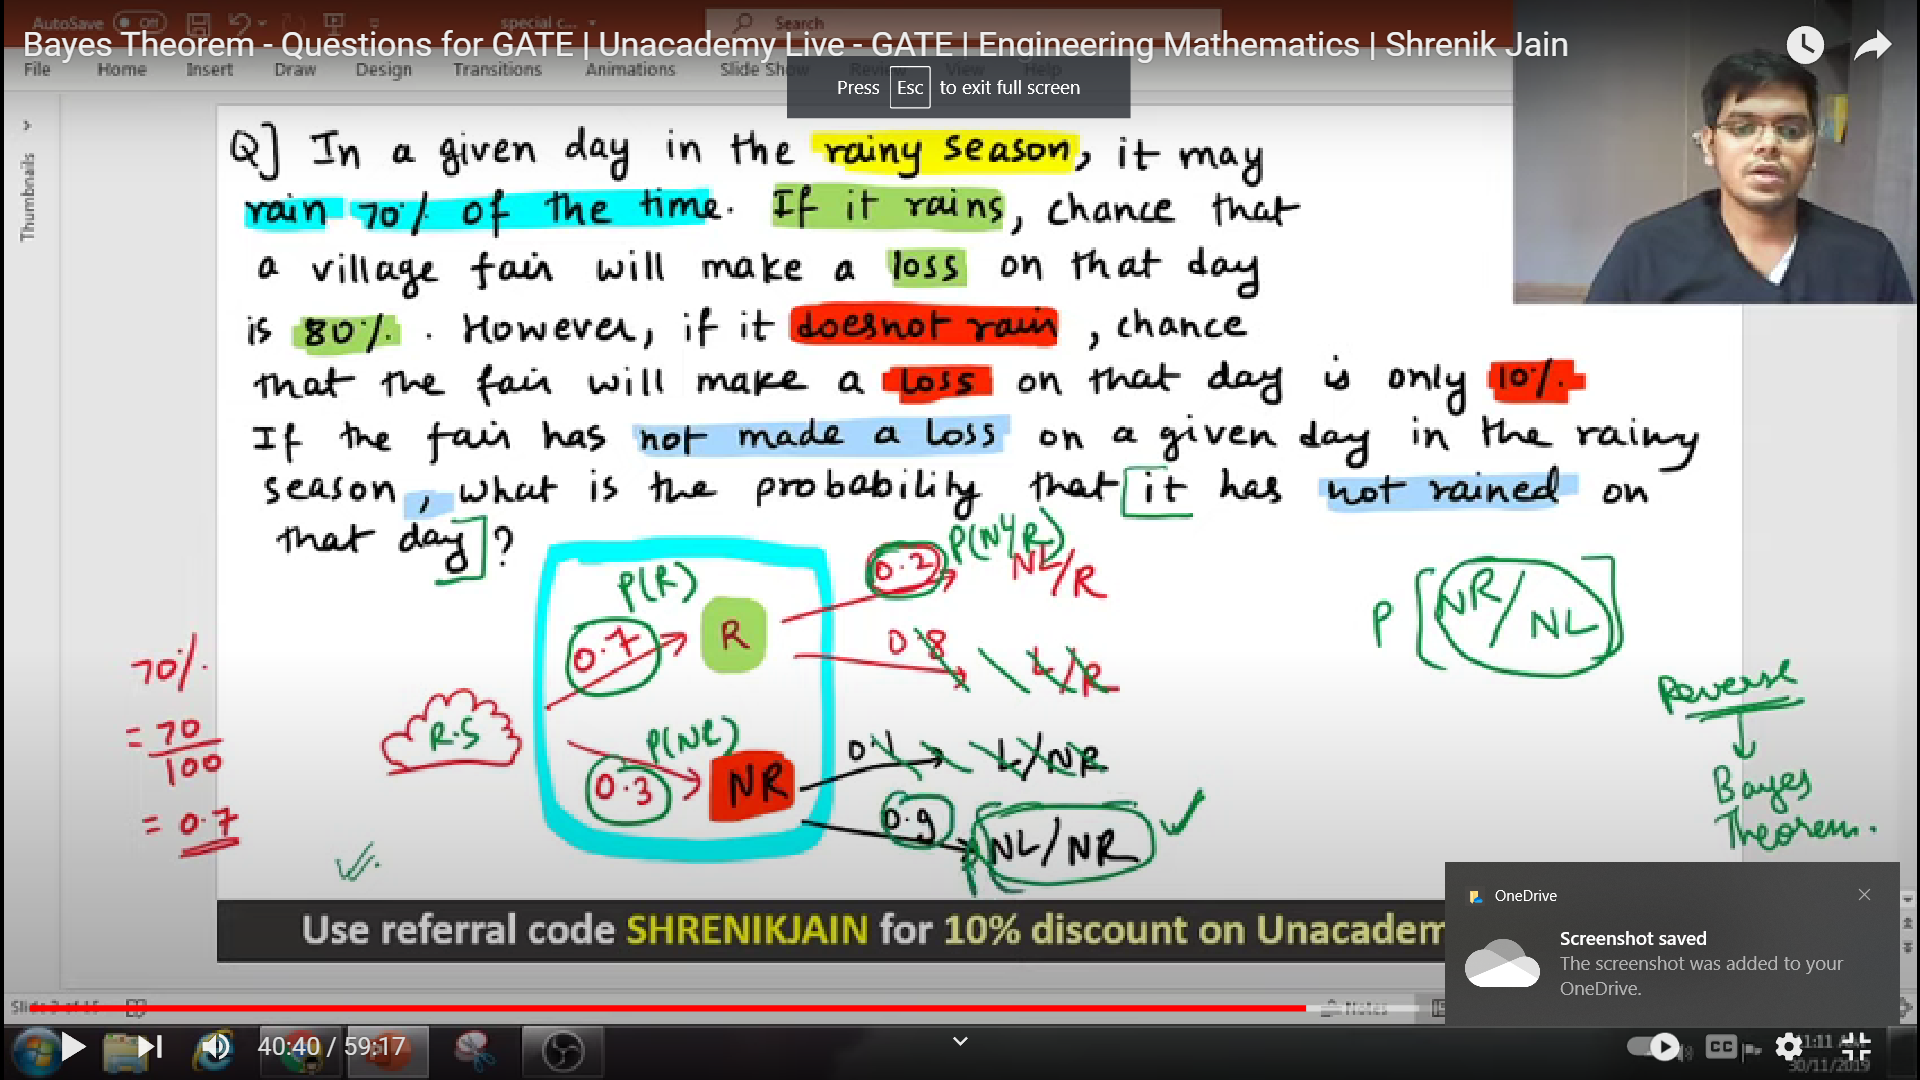 AutoSave Off special c... Search
Bayes Theorem - Questions for GATE | Unacademy Live - GATE | Engineering Mathematics | Shrenik Jain
File Home Insert Draw Design Transitions Animations Slide Show Review View Help
Press Esc to exit full screen
Thumbnails
Q] In a given day in the rainy season, it may
rain 70% of the time. If it rains, chance that
a village fair will make a loss on that day
is 80%. However, if it doesnot rain, chance
that the fair will make a loss on that day is only 10%.
If the fair has not made a loss on a given day in the rainy
season, what is the probability that [it has not rained on
that day]?
P(R)
0.7
R
0.2
P(NL/R)
NL/R
0.8
L/R
R.S
P(NR)
0.3
NR
0.1
L/NR
0.9
P(NL/NR)
P[NR/NL]
Reverse
Bayes
Theorem.
70%
= 70
100
= 0.7
Use referral code SHRENIKJAIN for 10% discount on Unacadem
OneDrive
Screenshot saved
The screenshot was added to your
OneDrive.
Notes
40:40 / 59:17
CC
30/11/2019